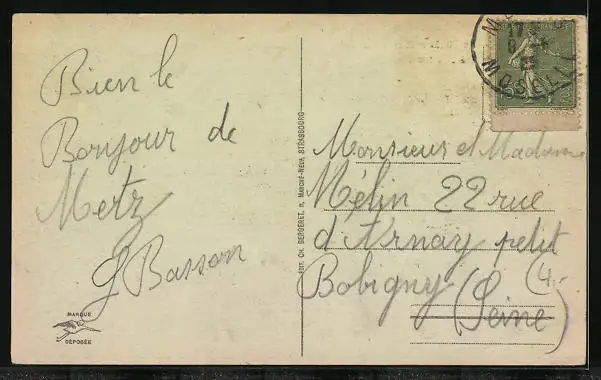 Bien le
Bonjour de
Metz
G Basson
MARQUE
DÉPOSÉE
EDIT. CH. BERGERET, 11, MARCHÉ-NEUF, STRASBOURG
17
MOSELLE
Monsieur et Madame
Mélin 22 rue
d'Arnay petit
Bobigny
(Seine)